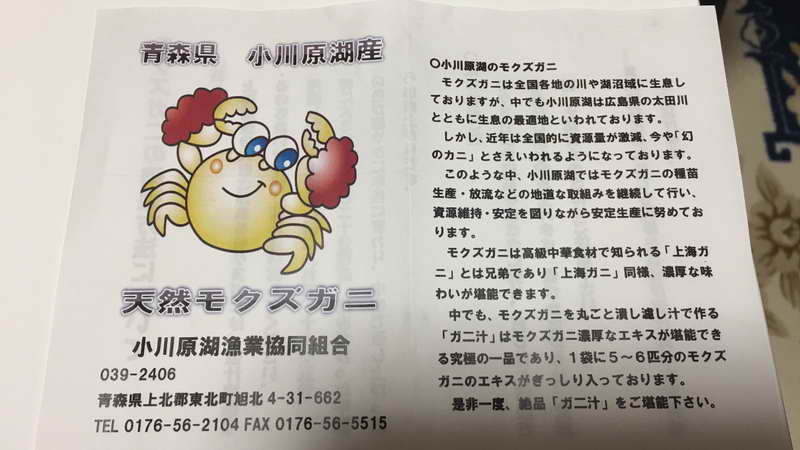 青森県　小川原湖産
天然モクズガニ
小川原湖漁業協同組合
039-2406
青森県上北郡東北町旭北 4-31-662
TEL 0176-56-2104 FAX 0176-56-5515
〇小川原湖のモクズガニ
モクズガニは全国各地の川や湖沼域に生息し
ておりますが、中でも小川原湖は広島県の太田川
とともに生息の最適地といわれております。
しかし、近年は全国的に資源量が激減、今や「幻
のカニ」とさえいわれるようになっております。
このような中、小川原湖ではモクズガニの種苗
生産・放流などの地道な取組みを継続して行い、
資源維持・安定を図りながら安定生産に努めてお
ります。
モクズガニは高級中華食材で知られる「上海ガ
ニ」とは兄弟であり「上海ガニ」同様、濃厚な味
わいが堪能できます。
中でも、モクズガニを丸ごと潰し漉し汁で作る
「ガニ汁」はモクズガニ濃厚なエキスが堪能でき
る究極の一品であり、1袋に5～6匹分のモクズ
ガニのエキスがぎっしり入っております。
是非一度、絶品「ガニ汁」をご堪能下さい。